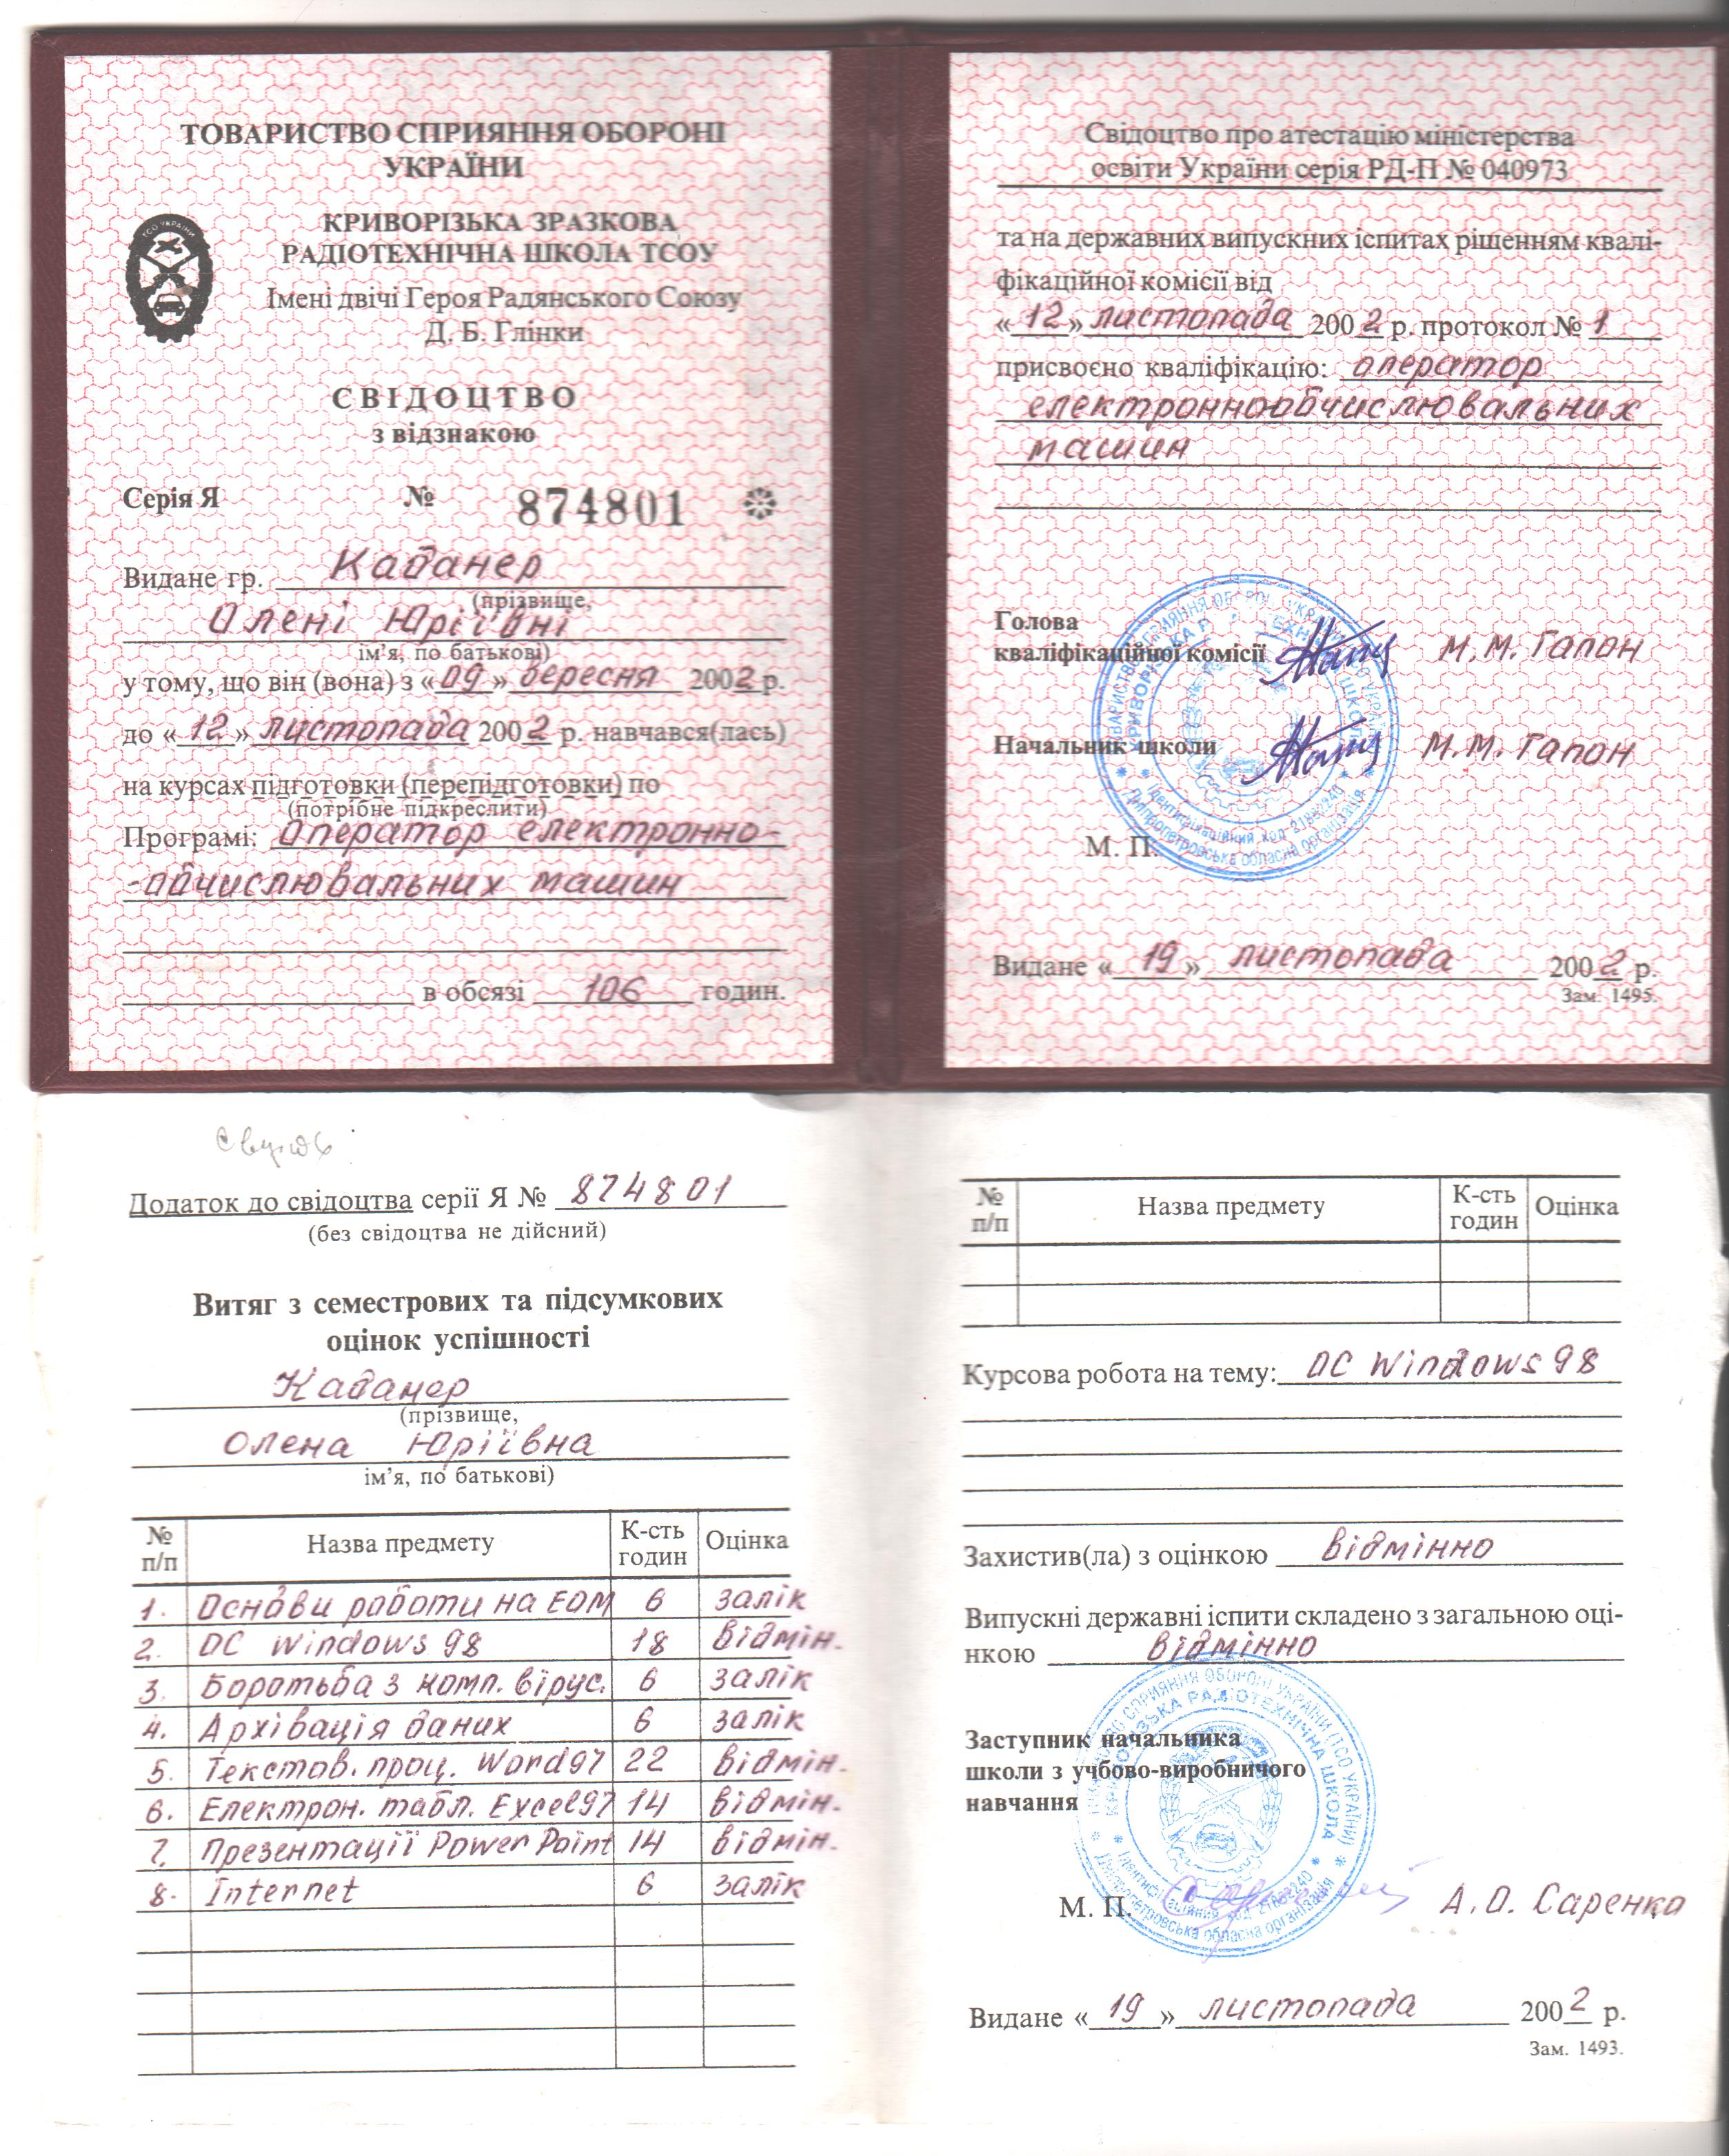 ТОВАРИСТВО СПРИЯННЯ ОБОРОНІ
УКРАЇНИ
ТСО УКРАЇНИ
КРИВОРІЗЬКА ЗРАЗКОВА
РАДІОТЕХНІЧНА ШКОЛА ТСОУ
Імені двічі Героя Радянського Союзу
Д. Б. Глінки
СВІДОЦТВО
з відзнакою
Серія Я № 874801
Видане гр. Каданер
(прізвище,
Олені Юріївні
ім’я, по батькові)
у тому, що він (вона) з «09» вересня 2002 р.
до «12» листопада 2002 р. навчався(лась)
на курсах підготовки (перепідготовки) по
(потрібне підкреслити)
Програмі: Оператор електронно-
-обчислювальних машин
в обсязі 106 годин.
Свідоцтво про атестацію міністерства
освіти України серія РД-П № 040973
та на державних випускних іспитах рішенням квалі-
фікаційної комісії від
«12» листопада 2002 р. протокол № 1
присвоєно кваліфікацію: оператор
електроннообчислювальних
машин
Голова
кваліфікаційної комісії М.М. Гапон
Начальник школи М.М. Гапон
М. П.
Видане «19» листопада 2002 р.
Зам. 1495.
Додаток до свідоцтва серії Я № 874801
(без свідоцтва не дійсний)
Витяг з семестрових та підсумкових
оцінок успішності
Каданер
(прізвище,
Олена Юріївна
ім’я, по батькові)
№ п/п Назва предмету К-сть годин Оцінка
1. Основи роботи на ЕОМ 6 залік
2. ОС Windows 98 18 відмін.
3. Боротьба з комп. вірус. 6 залік
4. Архівація даних 6 залік
5. Текстов. проц. Word97 22 відмін.
6. Електрон. табл. Excel97 14 відмін.
7. Презентації Power Point 14 відмін.
8. Internet 6 залік
№ п/п Назва предмету К-сть годин Оцінка
Курсова робота на тему: ОС Windows 98
Захистив(ла) з оцінкою відмінно
Випускні державні іспити складено з загальною оці-
нкою відмінно
Заступник начальника
школи з учбово-виробничого
навчання
М. П. А.О. Саренко
Видане «19» листопада 2002 р.
Зам. 1493.